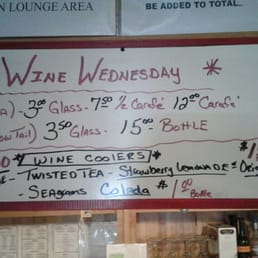 N LOUNGE AREA
BE ADDED TO TOTAL..
WINE WEDNESDAY *
A) - 3.00 GLASS - 7.50 1/2 Carafé 12.00 Carafé
Tail) 3.50 GLASS - 15.00 - BOTTLE
* WINE COOLERS *
- TWISTED TEA - Strawberry Lemonade
- SEAGRAMS Colada $1.00 Bottle